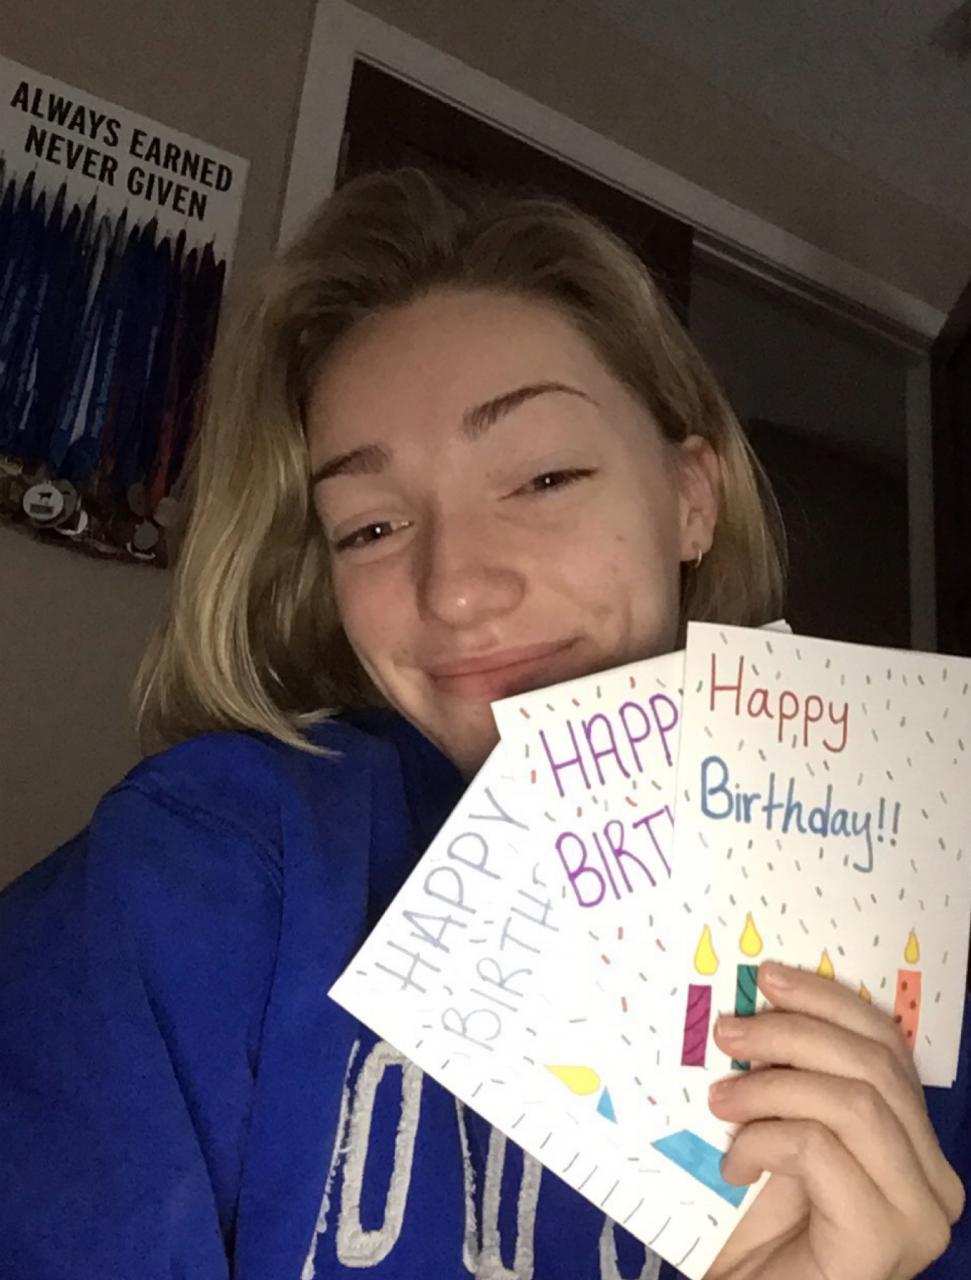 ALWAYS EARNED
NEVER GIVEN
HAPPY
BIRTH
HAPP
BIRT
Happy
Birthday!!